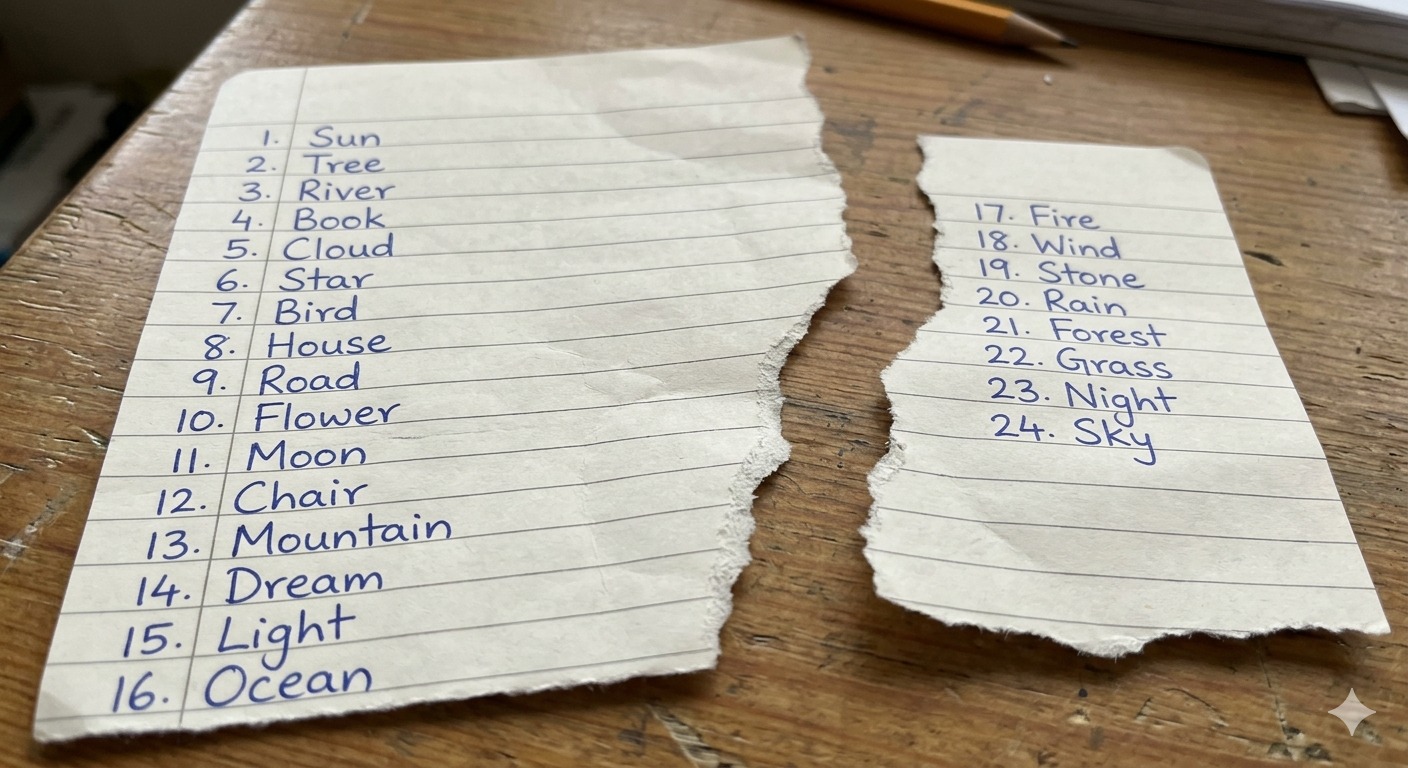 1. Sun
2. Tree
3. River
4. Book
5. Cloud
6. Star
7. Bird
8. House
9. Road
10. Flower
11. Moon
12. Chair
13. Mountain
14. Dream
15. Light
16. Ocean
17. Fire
18. Wind
19. Stone
20. Rain
21. Forest
22. Grass
23. Night
24. Sky